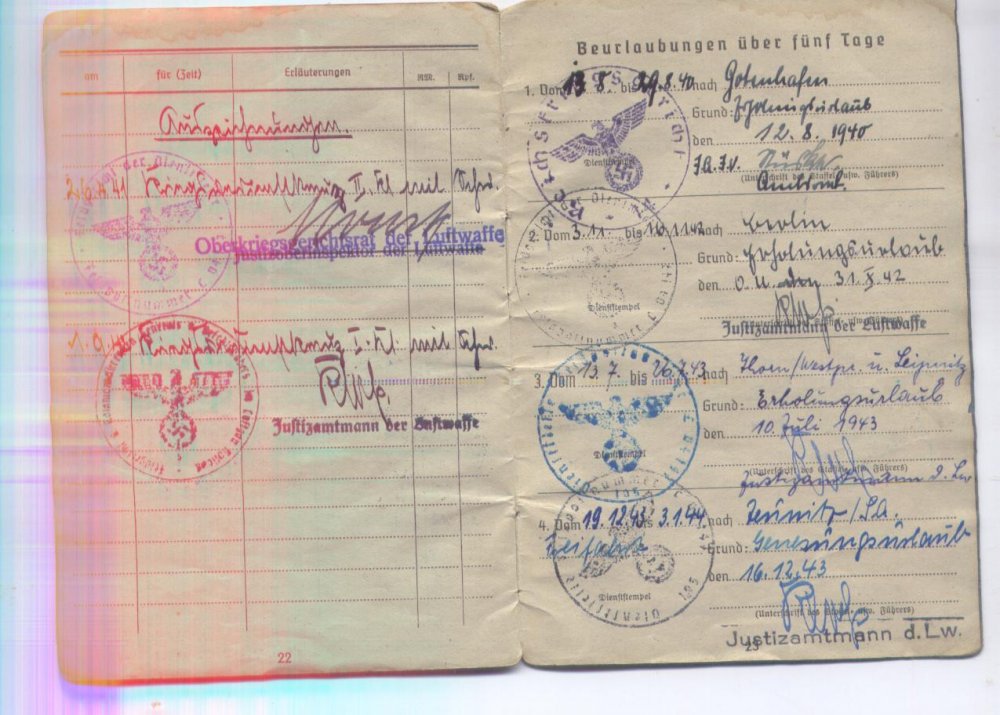 am für (Zeit) Erläuterungen RM. Rpf.
Auszeichnungen.
Kriegsverdienstkreuz II. Kl. mit Schw.
Oberkriegsgerichtsrat der Luftwaffe
Justizoberinspektor der Luftwaffe
Kriegsverdienstkreuz I. Kl. mit Schw.
Justizamtmann der Luftwaffe
22
Beurlaubungen über fünf Tage
1. Vom 13.8. bis 29.8.40 nach Gotenhafen
Grund: Erholungsurlaub
den 12.8.1940
Dienststempel
(Unterschrift des Staffel- usw. Führers)
2. Vom 3.11. bis 16.11.42 nach Berlin
Grund: Erholungsurlaub
den O.U. den 31.X.42
Dienststempel
Justizamtmann der Luftwaffe
3. Vom 13.7. bis 26.7.43 nach Thorn/Westpr. u.
Grund: Erholungsurlaub
den 10. Juli 1943
Dienststempel
(Unterschrift des Staffel- usw. Führers)
Justizamtmann d. Lw
4. Vom 19.12.43 bis 3.1.44 nach
Grund: Genesungsurlaub
den 16.12.43
Dienststempel
(Unterschrift des Staffel- usw. Führers)
Justizamtmann d. Lw.
23